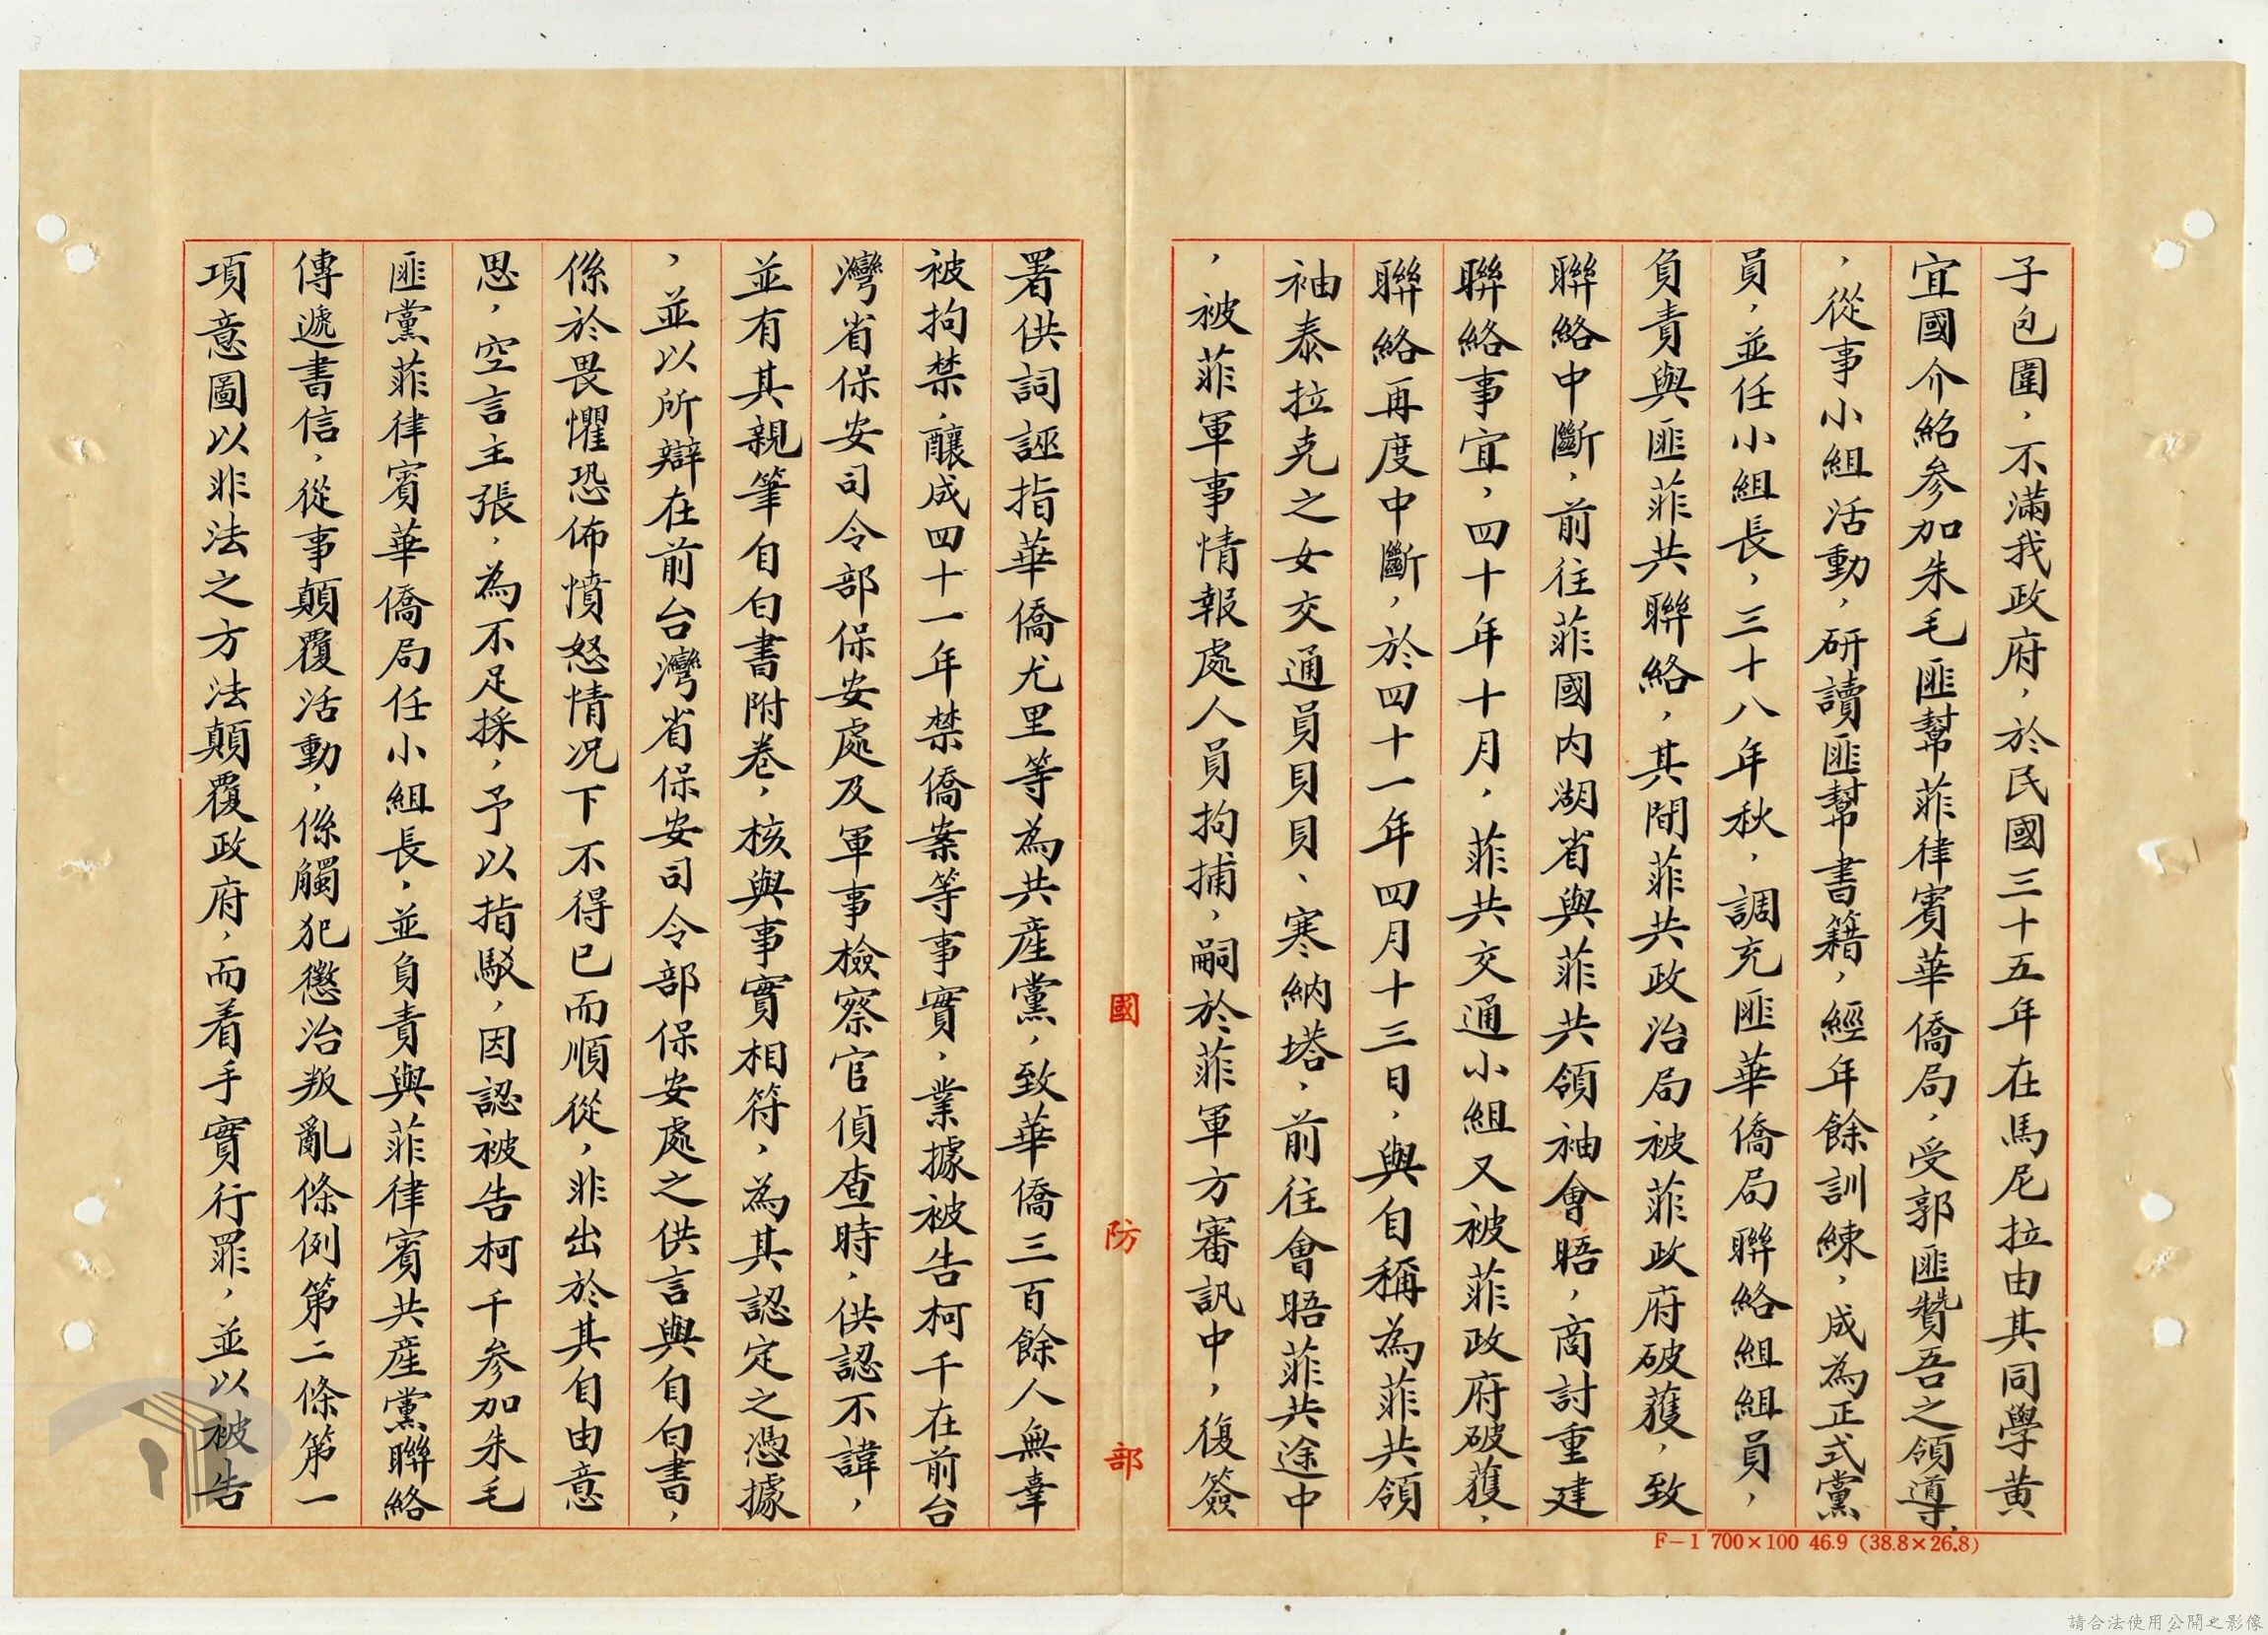 子包圍，不滿我政府，於民國三十五年在馬尼拉由其同學黃
宜國介紹參加朱毛匪幫菲律賓華僑局，受郭匪贊吾之領導，
，從事小組活動，研讀匪幫書籍，經年餘訓練，成為正式黨
員，並任小組長，三十八年秋，調充匪華僑局聯絡組組員，
負責與匪菲共聯絡，其間菲共政治局被菲政府破獲，致
聯絡中斷，前往菲國內湖省與菲共領袖會晤，商討重建
聯絡事宜，四十年十月，菲共交通小組又被菲政府破獲，
聯絡再度中斷，於四十一年四月十三日，與自稱為菲共領
袖泰拉克之女交通員貝貝、寒納塔，前往會晤菲共途中
，被菲軍事情報處人員拘捕，嗣於菲軍方審訊中，復簽
國防部
署供詞誣指華僑尤里等為共產黨，致華僑三百餘人無辜
被拘禁，釀成四十一年禁僑案等事實，業據被告柯千在前台
灣省保安司令部保安處及軍事檢察官偵查時，供認不諱，
並有其親筆自白書附卷，核與事實相符，為其認定之憑據
，並以所辯在前台灣省保安司令部保安處之供言與自白書，
係於畏懼恐佈憤怒情況下不得已而順從，非出於其自由意
思，空言主張，為不足採，予以指駁，因認被告柯千參加朱毛
匪黨菲律賓華僑局任小組長，並負責與菲律賓共產黨聯絡
傳遞書信，從事顛覆活動，係觸犯懲治叛亂條例第二條第一
項意圖以非法之方法顛覆政府，而着手實行罪，並以被告
F－1 700×100 46.9 (38.8×26.8)
請合法使用公開之影像